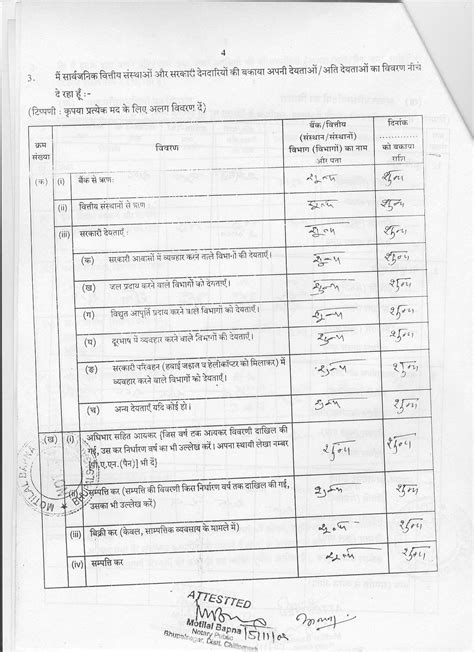 4
3. मैं सार्वजनिक वित्तीय संस्थाओं और सरकारी देनदारियों की बकाया अपनी देयताओं/अति देयताओं का विवरण नीचे
दे रहा हूँ :-
(टिप्पणी : कृपया प्रत्येक मद के लिए अलग विवरण दें)
क्रम संख्या विवरण बैंक/वित्तीय (संस्थान/संस्थानों) विभाग (विभागों) का नाम और पता दिनांक को बकाया राशि
(क) (i) बैंक से ऋण: शून्य शून्य
(ii) वित्तीय संस्थानों से ऋण: शून्य शून्य
(iii) सरकारी देयताएँ: शून्य शून्य
(क) सरकारी आवासों में व्यवहार करने वाले विभागों की देयताएँ। शून्य शून्य
(ख) जल प्रदाय करने वाले विभागों को देयताएँ। शून्य शून्य
(ग) विद्युत आपूर्ति प्रदाय करने वाले विभागों को देयताएँ। शून्य शून्य
(घ) दूरभाष में व्यवहार करने वाले विभागों की देयताएँ। शून्य शून्य
(ङ) सरकारी परिवहन (हवाई जहाज व हेलीकॉप्टर को मिलाकर) में
व्यवहार करने वाले विभागों को देयताएँ। शून्य शून्य
(च) अन्य देयताएँ यदि कोई हो। शून्य शून्य
(ख) (i) अधिभार सहित आयकर [जिस वर्ष तक आयकर विवरणी दाखिल की
गई, उस कर निर्धारण वर्ष का भी उल्लेख करें। अपना स्थायी लेखा नम्बर
(पी.ए.एन.(पैन)] भी दें} शून्य शून्य
सम्पत्ति कर (सम्पत्ति की विवरणी किस निर्धारण वर्ष तक दाखिल की गई,
उसका भी उल्लेख करें) शून्य शून्य
(iii) बिक्री कर (केवल, साम्पत्तिक व्यवसाय के मामले में) शून्य शून्य
(iv) सम्पत्ति कर शून्य शून्य
MOTILAL BAPNA
ATTESTTED
Motilal Bapna
Notary Public
Bhupalnagar, Distt.